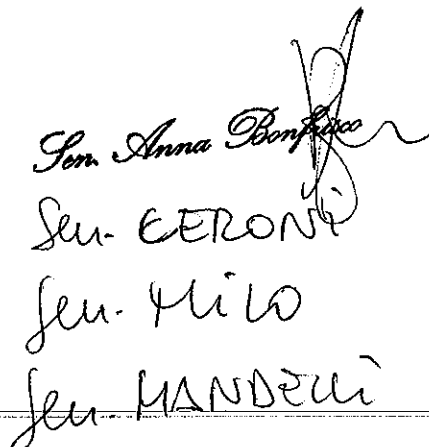 Sen. Anna Bonfrisco
Sen. CERONI
Sen. MILO
Sen. MANDELLI